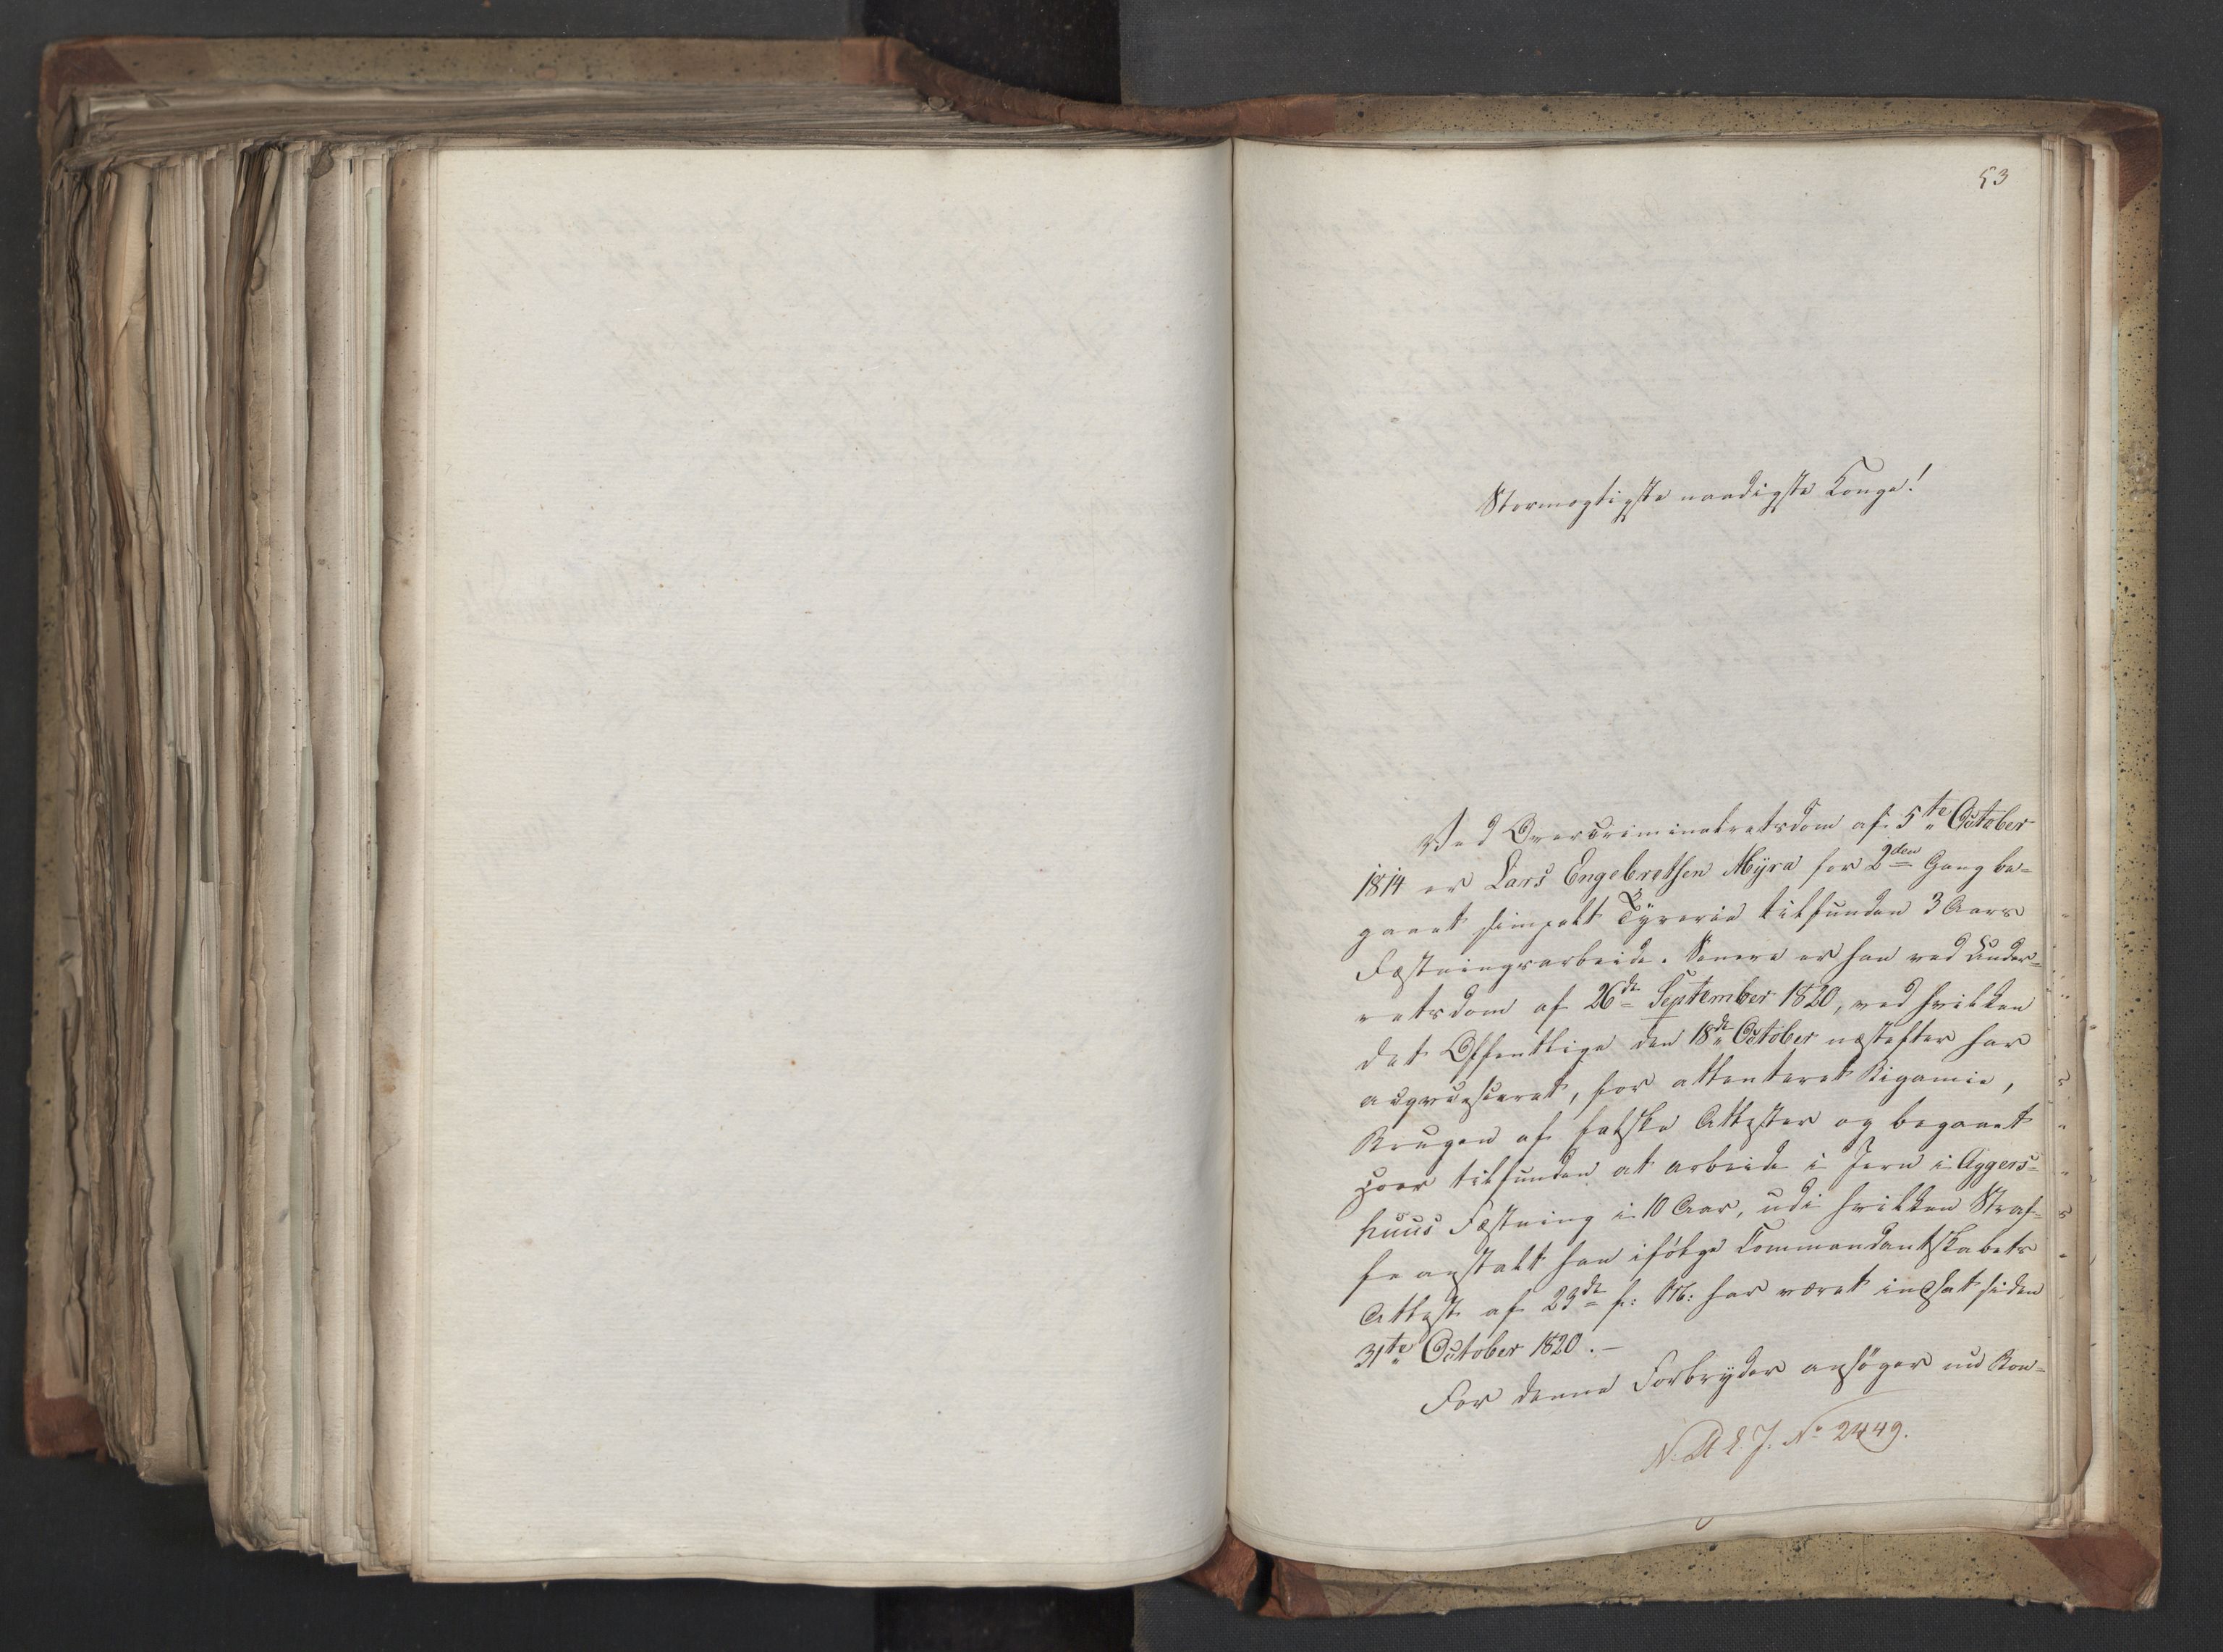 53
Stormægtigste naadigste Konge!
Ved Overcriminalretsdom af 5te October
1814 er Lars Engebretsen Myra for 2den Gang be-
gaaet simpelt Tyverie tilfunden 3 Aars
Fæstningsarbeide. Senere er han ved Under-
retsdom af 26de September 1820, ved hvilken
det Offentlige den 18de October næstefter har
acqviesceret, for attenteret Bigamie,
Brugen af falske Attester og begaaet
Hoer tilfunden at arbeide i Jern i Aggers-
huus Fæstning i 10 Aar, udi hvilken Straf-
feanstalt han ifølge Commandantskabets
Attest af 29de f: M: har været indsat siden
31te October 1820. –
For denne Forbryder ansøger nu Kon-
No 2449.